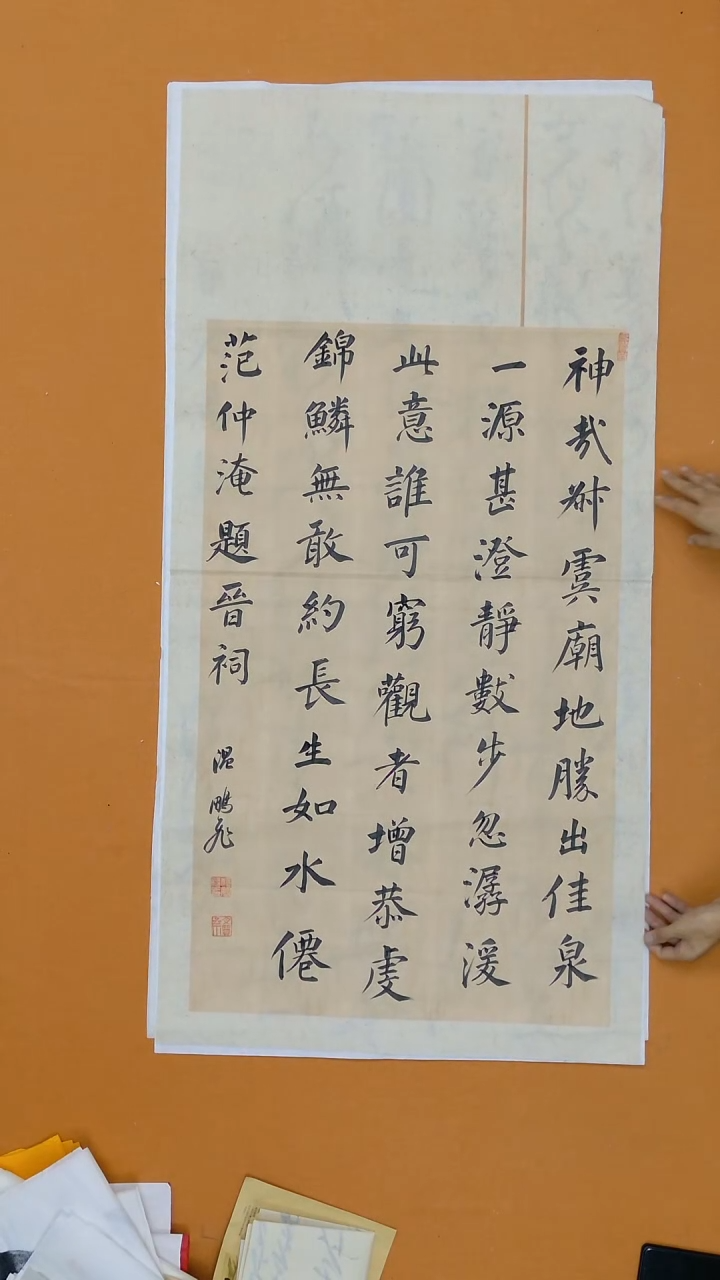 神哉叔虞廟地勝出佳泉
一源甚澄靜數步忽潺湲
此意誰可窮觀者增恭虔
錦鱗無敢約長生如水僊
范仲淹題晉祠 温鵬飛